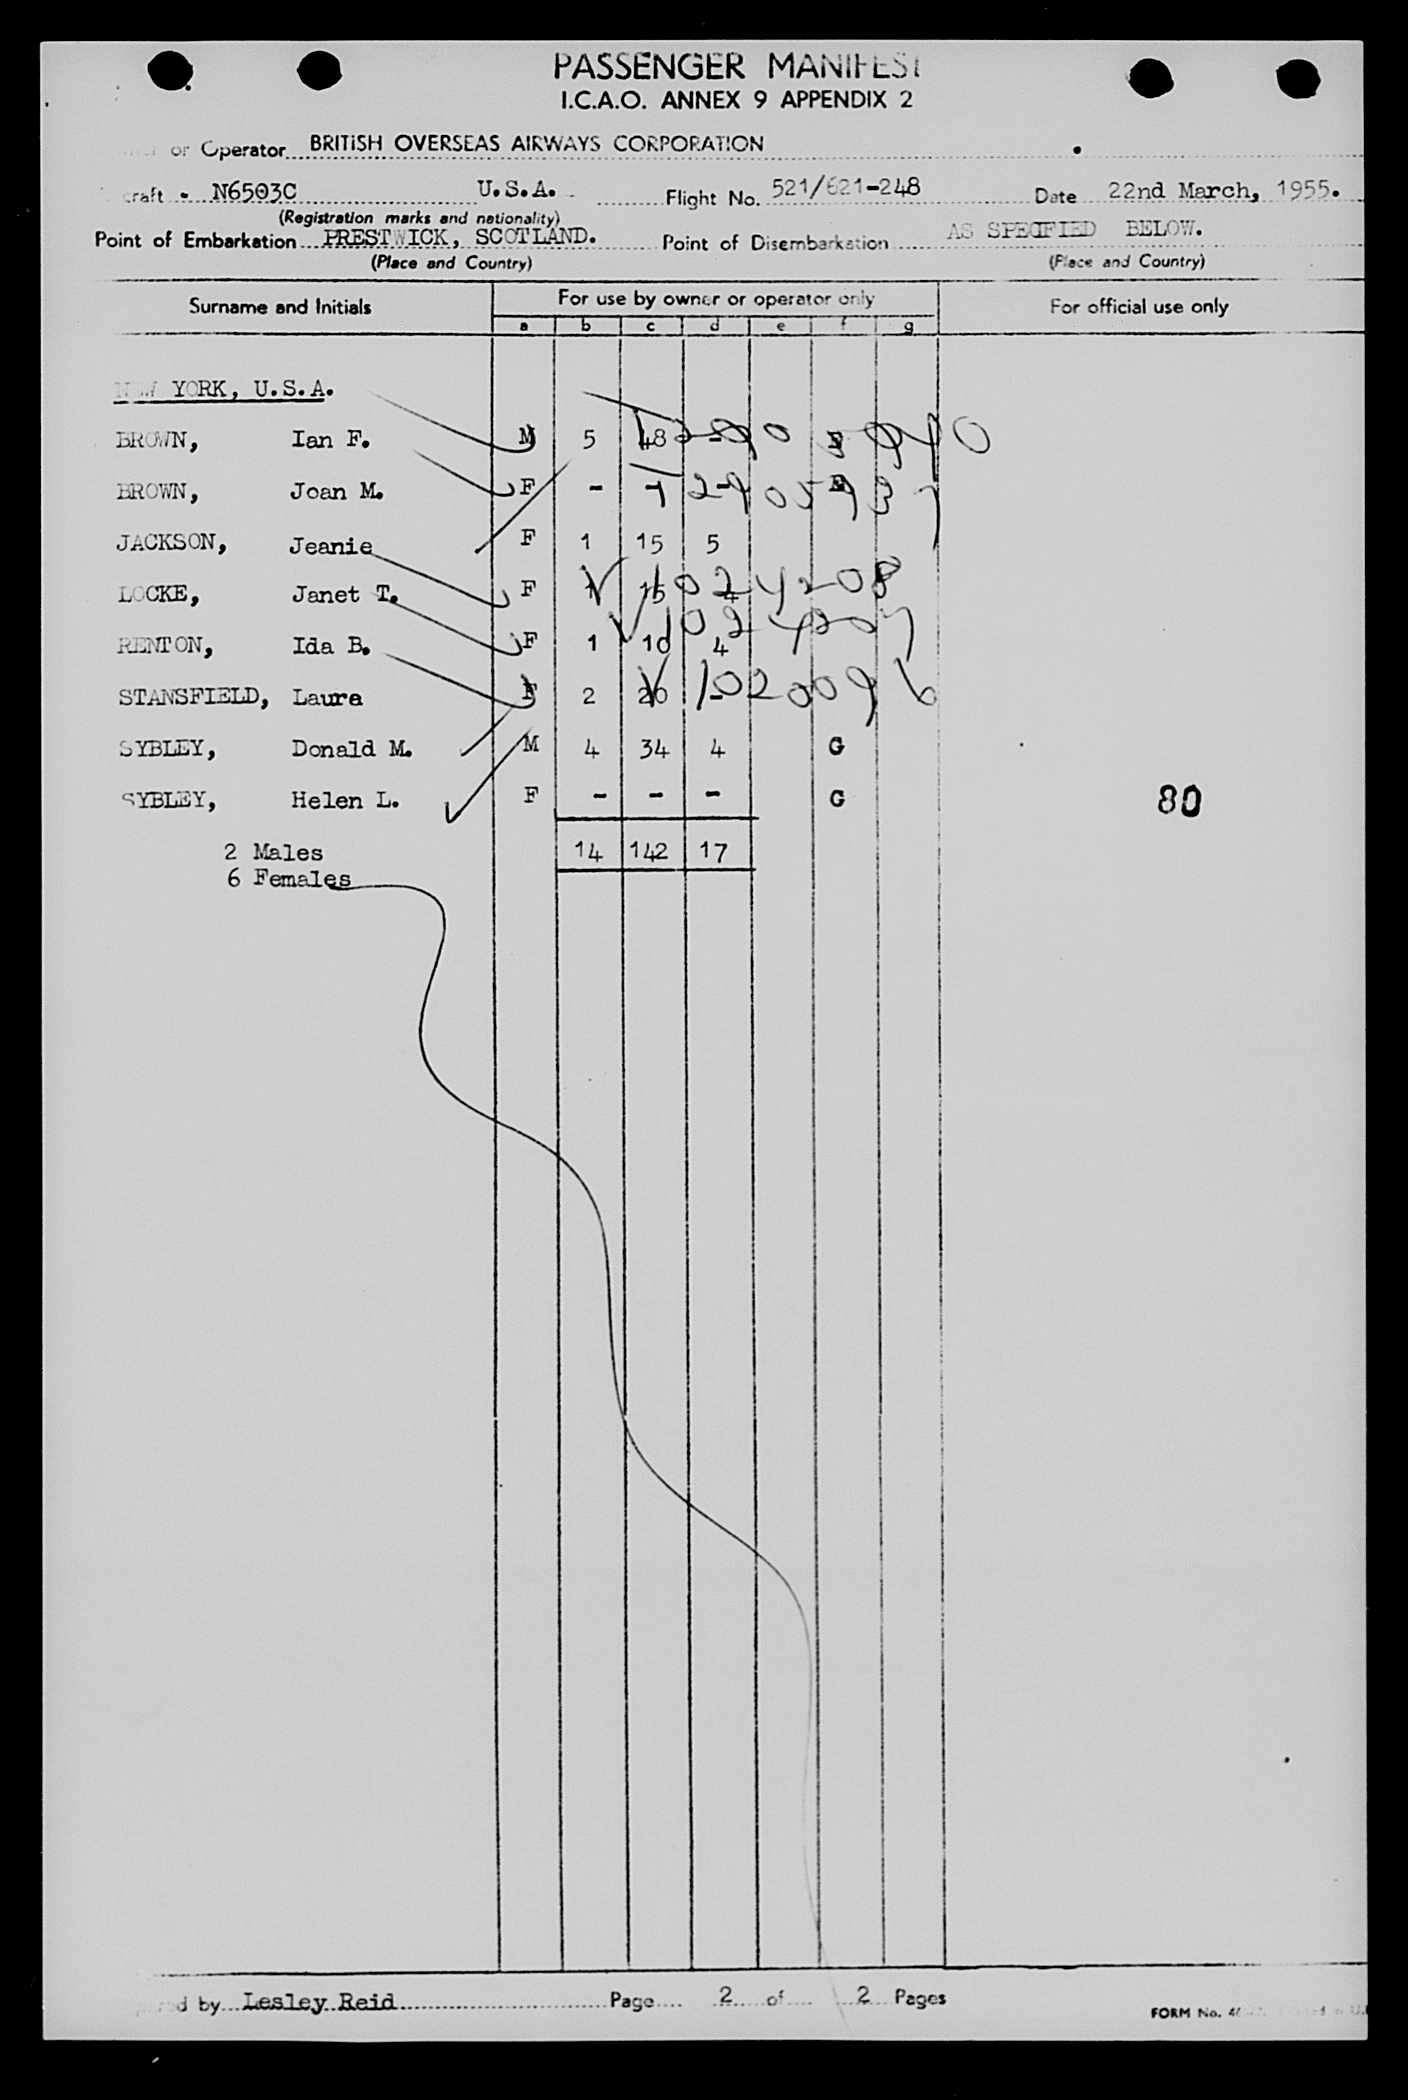 PASSENGER MANIFEST
I.C.A.O. ANNEX 9 APPENDIX 2
or Operator BRITISH OVERSEAS AIRWAYS CORPORATION
craft N6503C U.S.A. Flight No. 521/621-248 Date 22nd March, 1955.
(Registration marks and nationality)
Point of Embarkation PRESTWICK, SCOTLAND. Point of Disembarkation AS SPECIFIED BELOW.
(Place and Country) (Place and Country)
Surname and Initials For use by owner or operator only For official use only
a b c d e f g
NEW YORK, U.S.A.
BROWN, Ian F. M 5 48 -
BROWN, Joan M. F - - -
JACKSON, Jeanie F 1 15 5
LOCKE, Janet T. F 1 15 4 1024208
RENTON, Ida B. F 1 10 4 1024207
STANSFIELD, Laura F 2 20 - 1020096
SYBLEY, Donald M. M 4 34 4 G
SYBLEY, Helen L. F - - - G 80
2 Males 14 142 17
6 Females
by Lesley Reid Page 2 of 2 Pages
FORM No.